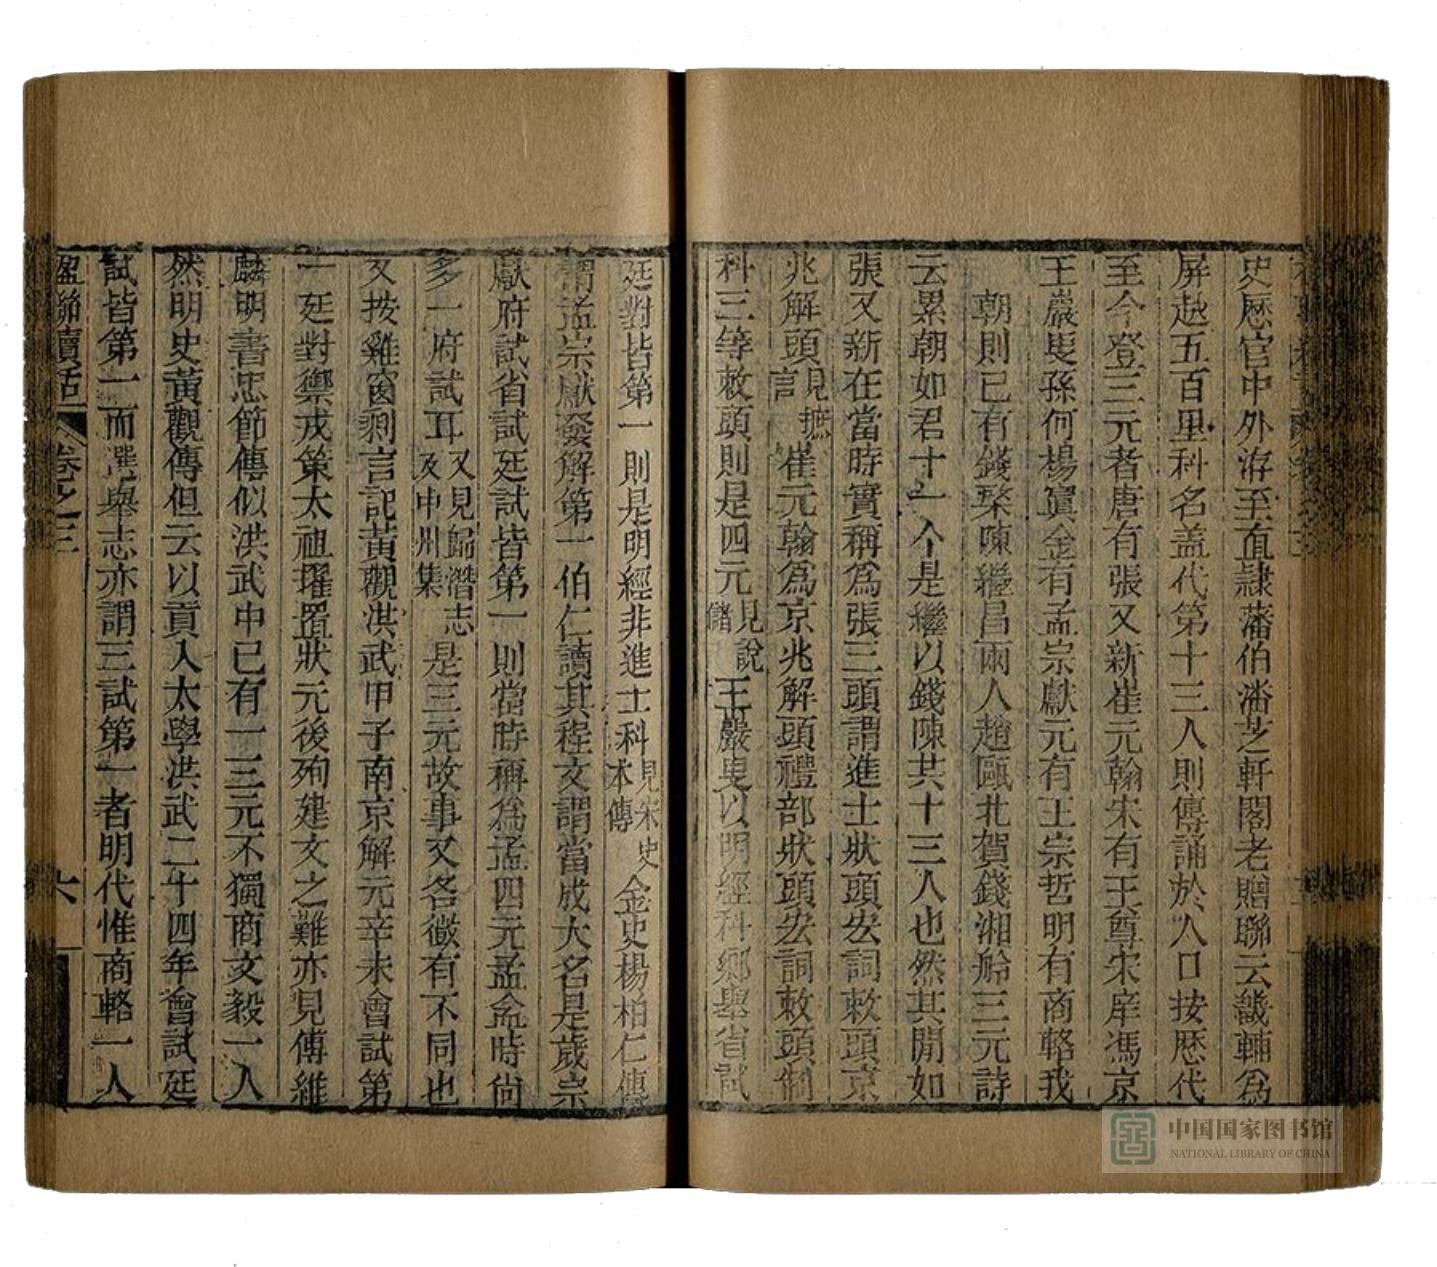 史歷官中外洊至直隸藩伯潘芝軒閣老贈聯云畿輔爲
屏越五百里科名蓋代第十三人則傳誦於人口按歷代
至今登三元者唐有張又新崔元翰宋有王尊宋庠馮京
王巖叟孫何楊寘金有孟宗獻元有王宗哲明有商輅我
朝則已有錢棨陳繼昌兩人趙甌北賀錢湘舲三元詩
云累朝如君十一个是繼以錢陳共十三人也然其開如
張又新在當時實稱爲張三頭謂進士狀頭宏詞敕頭京
兆解頭見摭言崔元翰爲京兆解頭禮部狀頭宏詞敕頭制
科三等敕頭則是四元見說儲王巖叟以明經科鄉舉省試
廷對皆第一則是明經非進士科見宋史本傳金史楊柏仁傳
謂孟宗獻發解第一伯仁讀其程文謂當成大名是歲宗
獻府試省試廷試皆第一則當時稱爲孟四元孟金時尙
多一府試耳又見歸潛志及中州集是三元故事又各微有不同也
又按雞窗剩言記黃觀洪武甲子南京解元辛未會試第
一廷對禦戎策太祖擢置狀元後殉建文之難亦見傅維
麟明書忠節傳似洪武中已有一三元不獨商文毅一人
然明史黃觀傳但云以貢入太學洪武二十四年會試廷
試皆第一而選舉志亦謂三試第一者明代惟商輅一人
楹聯續話 卷之三 六
中国国家图书馆
NATIONAL LIBRARY OF CHINA